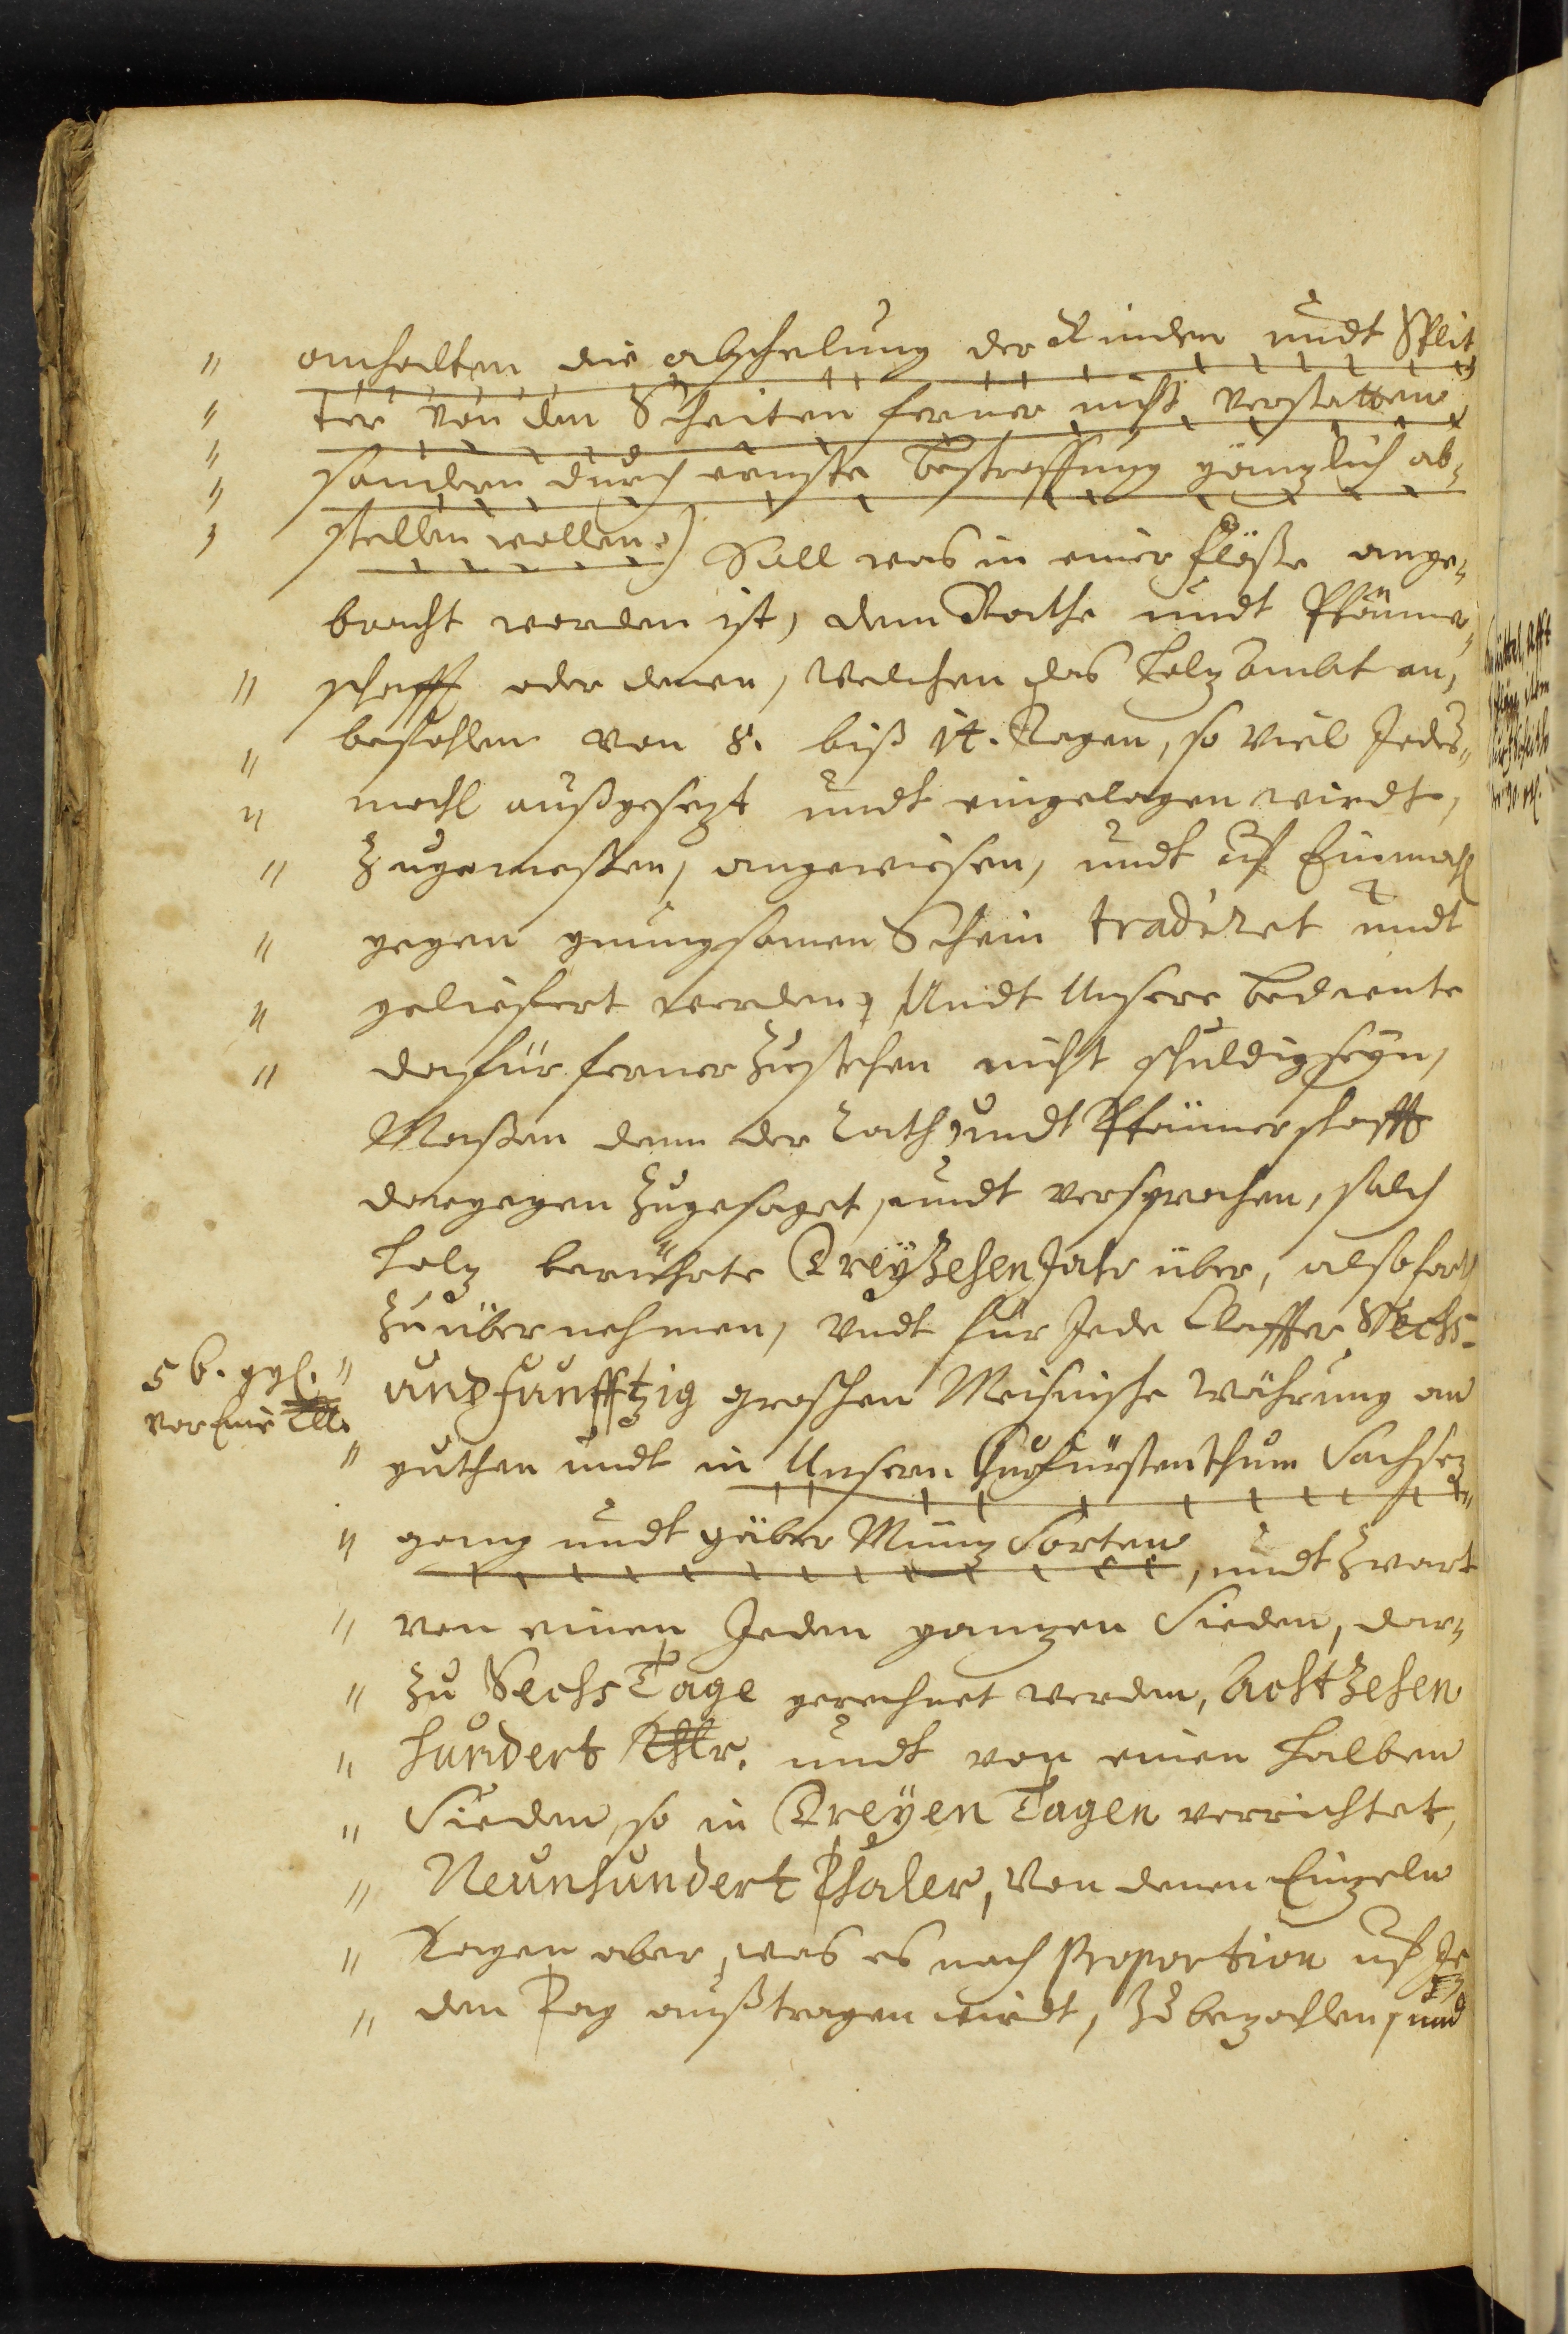 anhalten die abschelung der Rinden undt Split„
ter von den Scheiten ferner nicht verstatten
sondern durch ernste bestraffung gäntzlich ab„
stellen wollen.) Soll was in einer flöße ange„
bracht worden ist, dem Rathe undt Pfänner„
schafft oder denen, welchen das Holz ambt an„
befohlen von 8. biß 14. Tagen, so viel Jedes„
mahl außgesezt undt eingelegen wirdt,
Zugemeßen, angewiesen, undt uf Einmahl
gegen gnungsamen Schein tradiret undt
geliefert werden, Undt Unsere bediente
dafür ferner zustehen nicht schuldig seyn,
Maßen denn der Rath, undt Pfännerschafft
dargegen zugesaget, undt versprochen, solch
Holz berührte Dreÿzehen Jahr über, also fort
zu übernehmen, undt für Jede Claffter Sechs-
undfunfftzig groschen Meisnische währung an
guthen undt in Unsern Churfürstenthum Sachsen
gang undt gäber Münz Sorten, undt zwart
von einen Jeden ganzen Sieden, dar„
zu Sechs Tage gerechnet werden, Achtzehen
hundert Thlr. undt von einen halben
Sieden, so in Dreÿen Tagen verrichtet,
Neunhundert Thaler, von denen Einzeln
Tagen aber, was es nach Proportion uf Je„
den Tag außtragen wirdt, zu bezahlen, und
56. ggl.
vor Eine Cl.